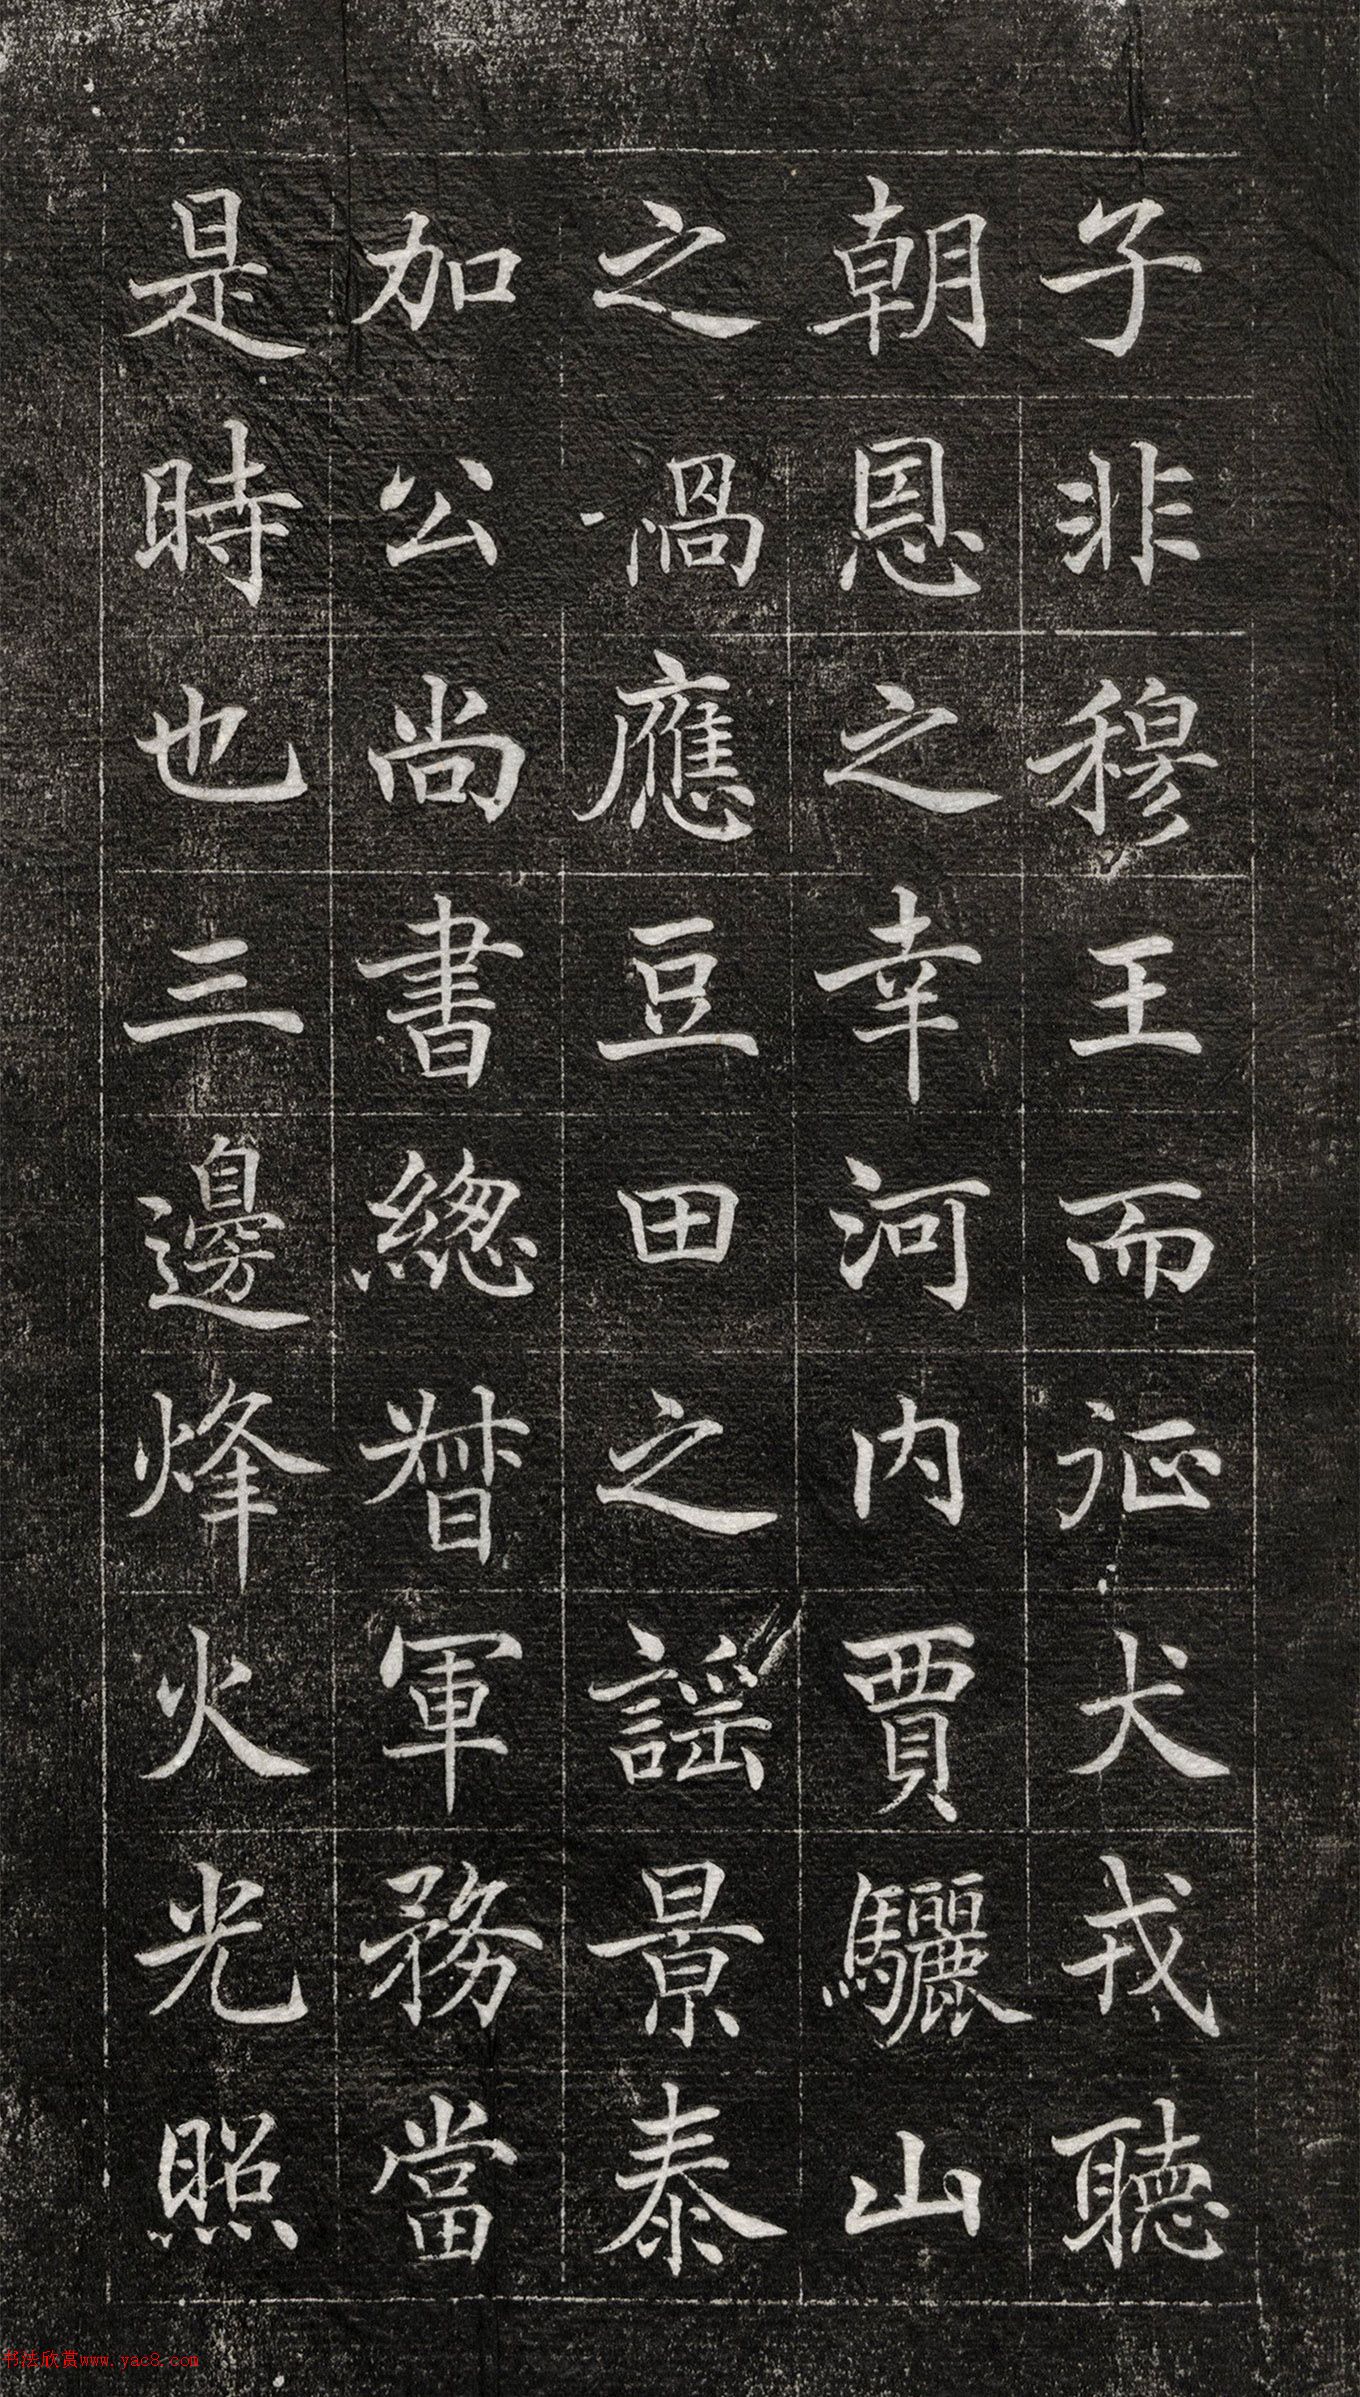 子非穆王而征犬戎聽
朝恩之幸河内賈驪山
之禍應豆田之謡景泰
加公尚書總督軍務當
是時也三邊烽火光照
书法欣赏www.yac8.com